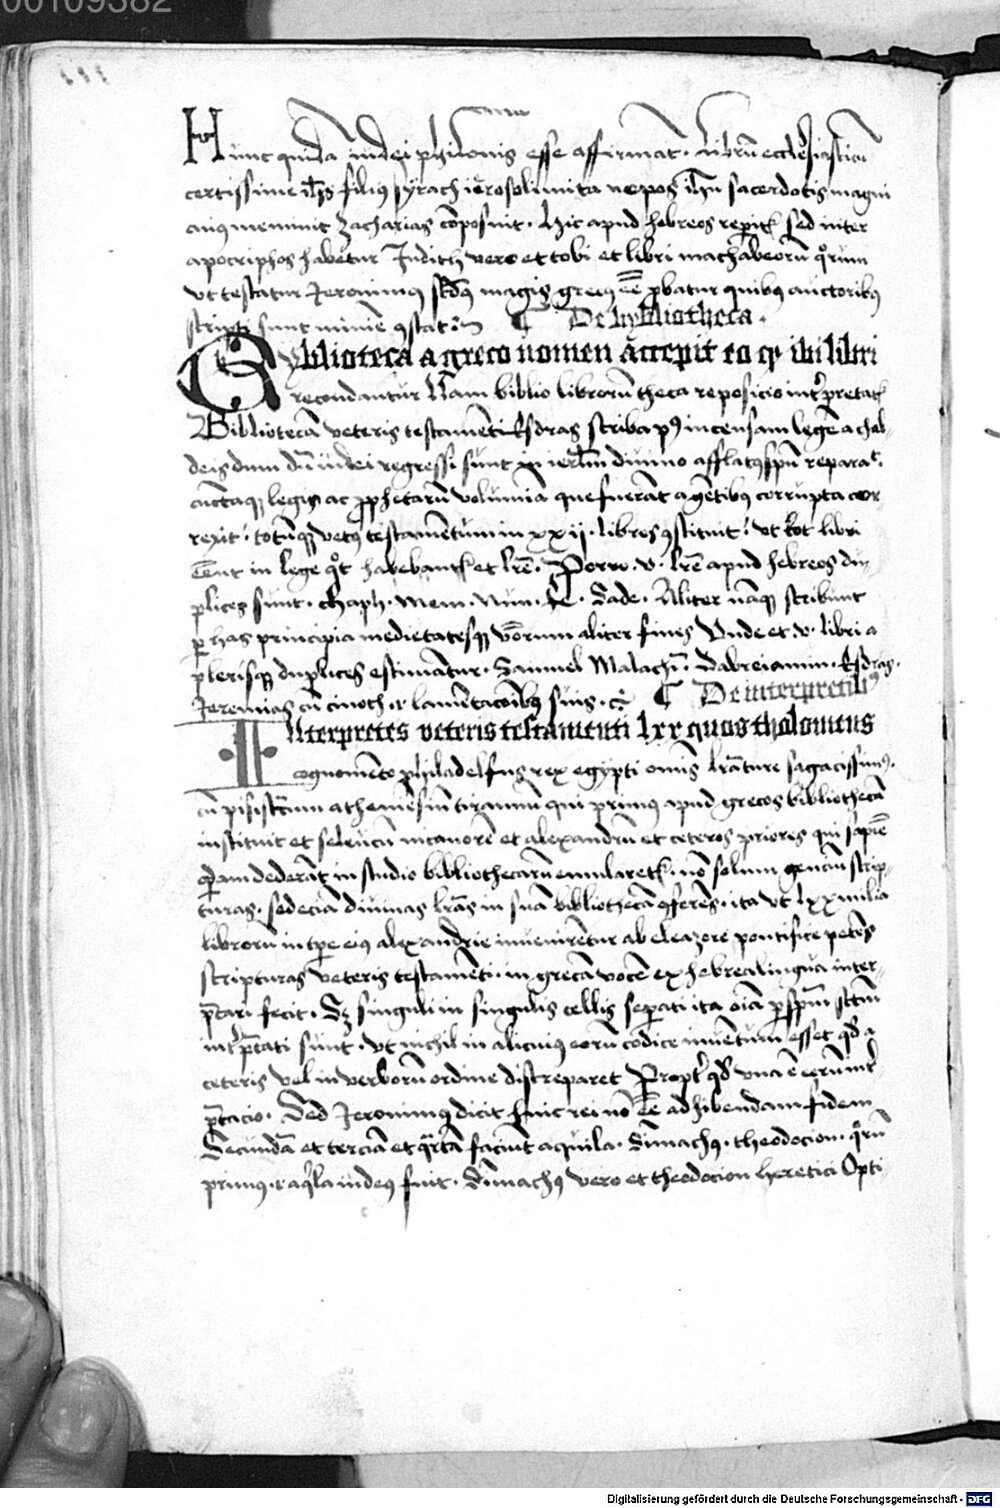 00109382
Hunc quida iudei philonis esse affirmāt. librū ecclesiasticū
certissime ihs filius syrach ierosolimita nepos ihu sacerdotis magni
cuiꝰ meminit Zacharias cōposuit. Hic apud hebreos reperitr sed inter
apocriphos habetur Judith vero et tobi et libri machabeorū quorum
ut testatur Jeronimus magis grecus eē probatur quibus auctoribus
scripti sunt minime constat De bybliotheca.
Byblioteca a greco nomen accepit eo qꝫ ibi libri
recondantur Nam biblio librorū theca reposicio interpretatr
Bibliotecā veteris testamēti Esdras scriba pꝰ incensam legē a chal
deis dum iudei regressi sunt in ierlm diuino afflatꝰ spū reparat.
cunctaqꝫ legis ac prophetarū volumina que fuerāt a gētibus corrupta cor
rexit. totūqꝫ vetꝰ testamentum in xxij. libros constituit. ut tot libri
eent in lege qt habebantr et lrē. Porro .v. lrē apud hebreos du
plices sunt. chaph. Mem. Nun. fe. Sade. Aliter nāqꝫ scribunt
per has principia medietatesqꝫ verborum aliter fines Unde et .v. libri a
plerisqꝫ duplices estimātur. Samuel Malachi. Dabreiamin. Esdras.
Jeremias cū cinoth .i. lamētacōibꝰ suis. De interpretibꝰ
Interpretes veteris testamenti lxx quos tholomeus
cognomēto philadelfus rex egypti omnis lrāture sagacissimꝰ.
cū pisistratum atheniēsiū tirannū qui primus apud grecos bibliothecā
instituit et seleucū nicanorē et alexandrū et ceteros priores qui sapiē
operam dederāt in studio bibliothecarū emularetr nō solum genciū scrip
turas. sed eciā diuinas lrās in suā bibliothecā conferēs. ita ut lxx milia
librorū in tpe eius alexandrie inuenirētur ab eleazore pontifice petēs
scripturas veteris testamēti. in grecā vocē ex hebrea lingua inter
pretari fecit. Sꝫ singuli in singulis cellis separati ita oia per spm sctm
interpretati sunt. ut nichil in alicuius eorū codice inuentum esset qd a
ceteris vel in verborū ordine discreparet Propter qd una ē eorū inter
pretacio. Sed Jeronimus dicit huic rei nō eē adhibendam fidem
Secundā et terciā et quartā faciūt aquila. Simachꝰ. theodocion. quorū
primus .i. aquila iudeus fuit. Simachꝰ vero et theodocion heretici Opti
Digitalisierung gefördert durch die Deutsche Forschungsgemeinschaft - DFG